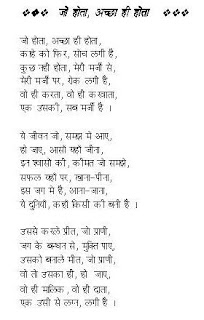 जो होता, अच्छा ही होता
जो होता, अच्छा ही होता,
काहे को फिर, सोच लगी है,
कुछ नहीं होता, मेरी मर्जी से,
मेरी मर्जी पर, रोक लगी है,
वो ही करता, वो ही करवाता,
एक उसकी, सब मर्जी है ।
ये जीवन जो, समझ मे आए,
हो जाए, आसाँ यहाँ जीना,
इन श्वासो की, कीमत जो समझे,
सफल यहाँ पर, खाना-पीना,
इस जग मे है, आना-जाना,
ये दुनियाँ, कहाँ किसी की बनी है ।
उससे करले प्रीत, जो प्राणी,
जग के बन्धन से, मुक्ति पाए,
उसको बनाले मीत, जो प्राणी,
वो तो उसका ही, हो जाए,
वो ही मालिक, वो ही दाता,
एक उसी से लग्न, लगी है ।